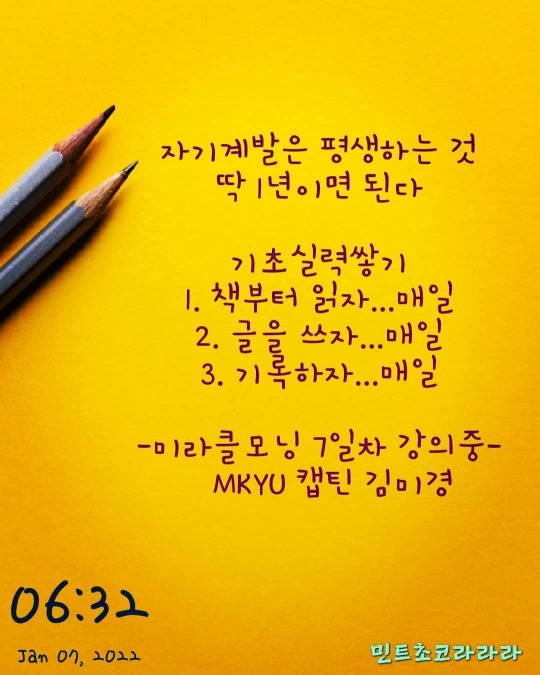 자기계발은 평생하는 것
딱 1년이면 된다
기초실력쌓기
1. 책부터 읽자...매일
2. 글을 쓰자...매일
3. 기록하자...매일
-미라클모닝 7일차 강의중-
MKYU 캡틴 김미경
06:32
Jan 07, 2022
민트초코라라라